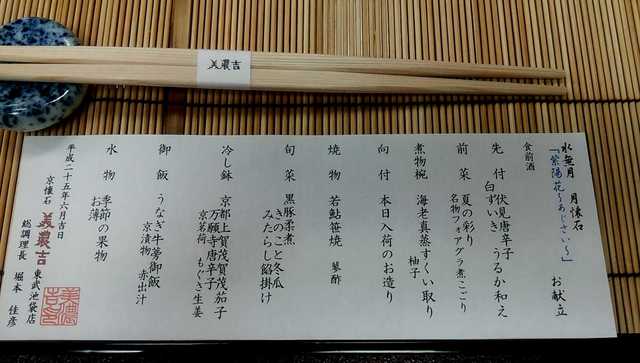 美濃吉
水無月　月懐石
「紫陽花～あじさい～」　お献立
食前酒
先付　伏見唐辛子　うるか和え
白ずいき
前菜　夏の彩り
名物フォアグラ煮こごり
煮物椀　海老真蒸すくい取り
柚子
向付　本日入荷のお造り
焼物　若鮎笹焼　蓼酢
旬菜　黒豚柔煮
きのこと冬瓜
みたらし餡掛け
冷し鉢　京都上賀茂賀茂茄子
万願寺唐辛子
京茗荷　もぐさ生姜
御飯　うなぎ牛蒡御飯
京漬物　赤出汁
水物　季節の果物
お薄
平成二十五年六月吉日
京懐石　美濃吉　東武池袋店
総調理長　堀本　佳彦
美濃吉